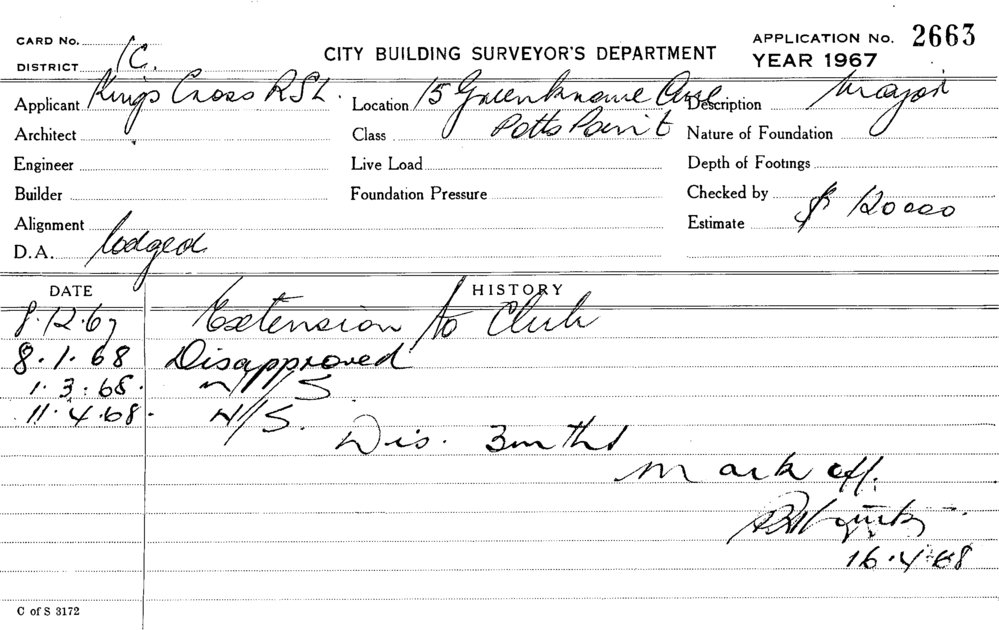 CARD No.
DISTRICT 1C.
CITY BUILDING SURVEYOR'S DEPARTMENT
APPLICATION No. 2663
YEAR 1967
Applicant Kings Cross RSL. Location 15 Greenknowe Ave Description Major
Architect Class Potts Point Nature of Foundation
Engineer Live Load Depth of Footings
Builder Foundation Pressure Checked by
Alignment Estimate $ 120000
D.A. lodged
DATE HISTORY
8.12.67 Extension to Club
8.1.68 Disapproved
1.3.68. N/S
11.4.68. N/S.
Dis. 3mths
Mark off.
16.4.68
C of S 3172